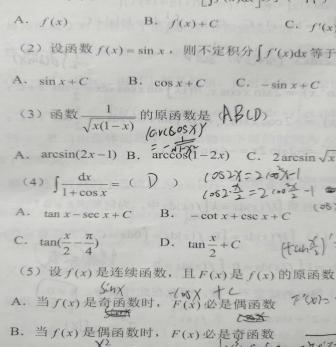 A. f(x) B. f(x)+C C. f'(x
(2) 设函数 f(x) = sin x，则不定积分 ∫ f'(x)dx 等于
A. sin x + C B. cos x + C C. −sin x + C
(3) 函数 1/√(x(1−x)) 的原函数是 (ABCD)
(arccosx)'
= −1/√(1−x²)
A. arcsin(2x−1) B. arccos(1−2x) C. 2arcsin √x
(4) ∫ dx/(1+cos x) = ( D )
cos2x=2cos²x−1
cos2·x/2=2cos²x/2−1
A. tan x − sec x + C B. −cot x + csc x + C
C. tan(x/2 − π/4) D. tan x/2 + C
(5) 设 f(x) 是连续函数，且 F(x) 是 f(x) 的原函数
sinx −cosx +C
A. 当 f(x) 是奇函数时，F(x) 必是偶函数 F'(x)=
B. 当 f(x) 是偶函数时，F(x) 必是奇函数
x²